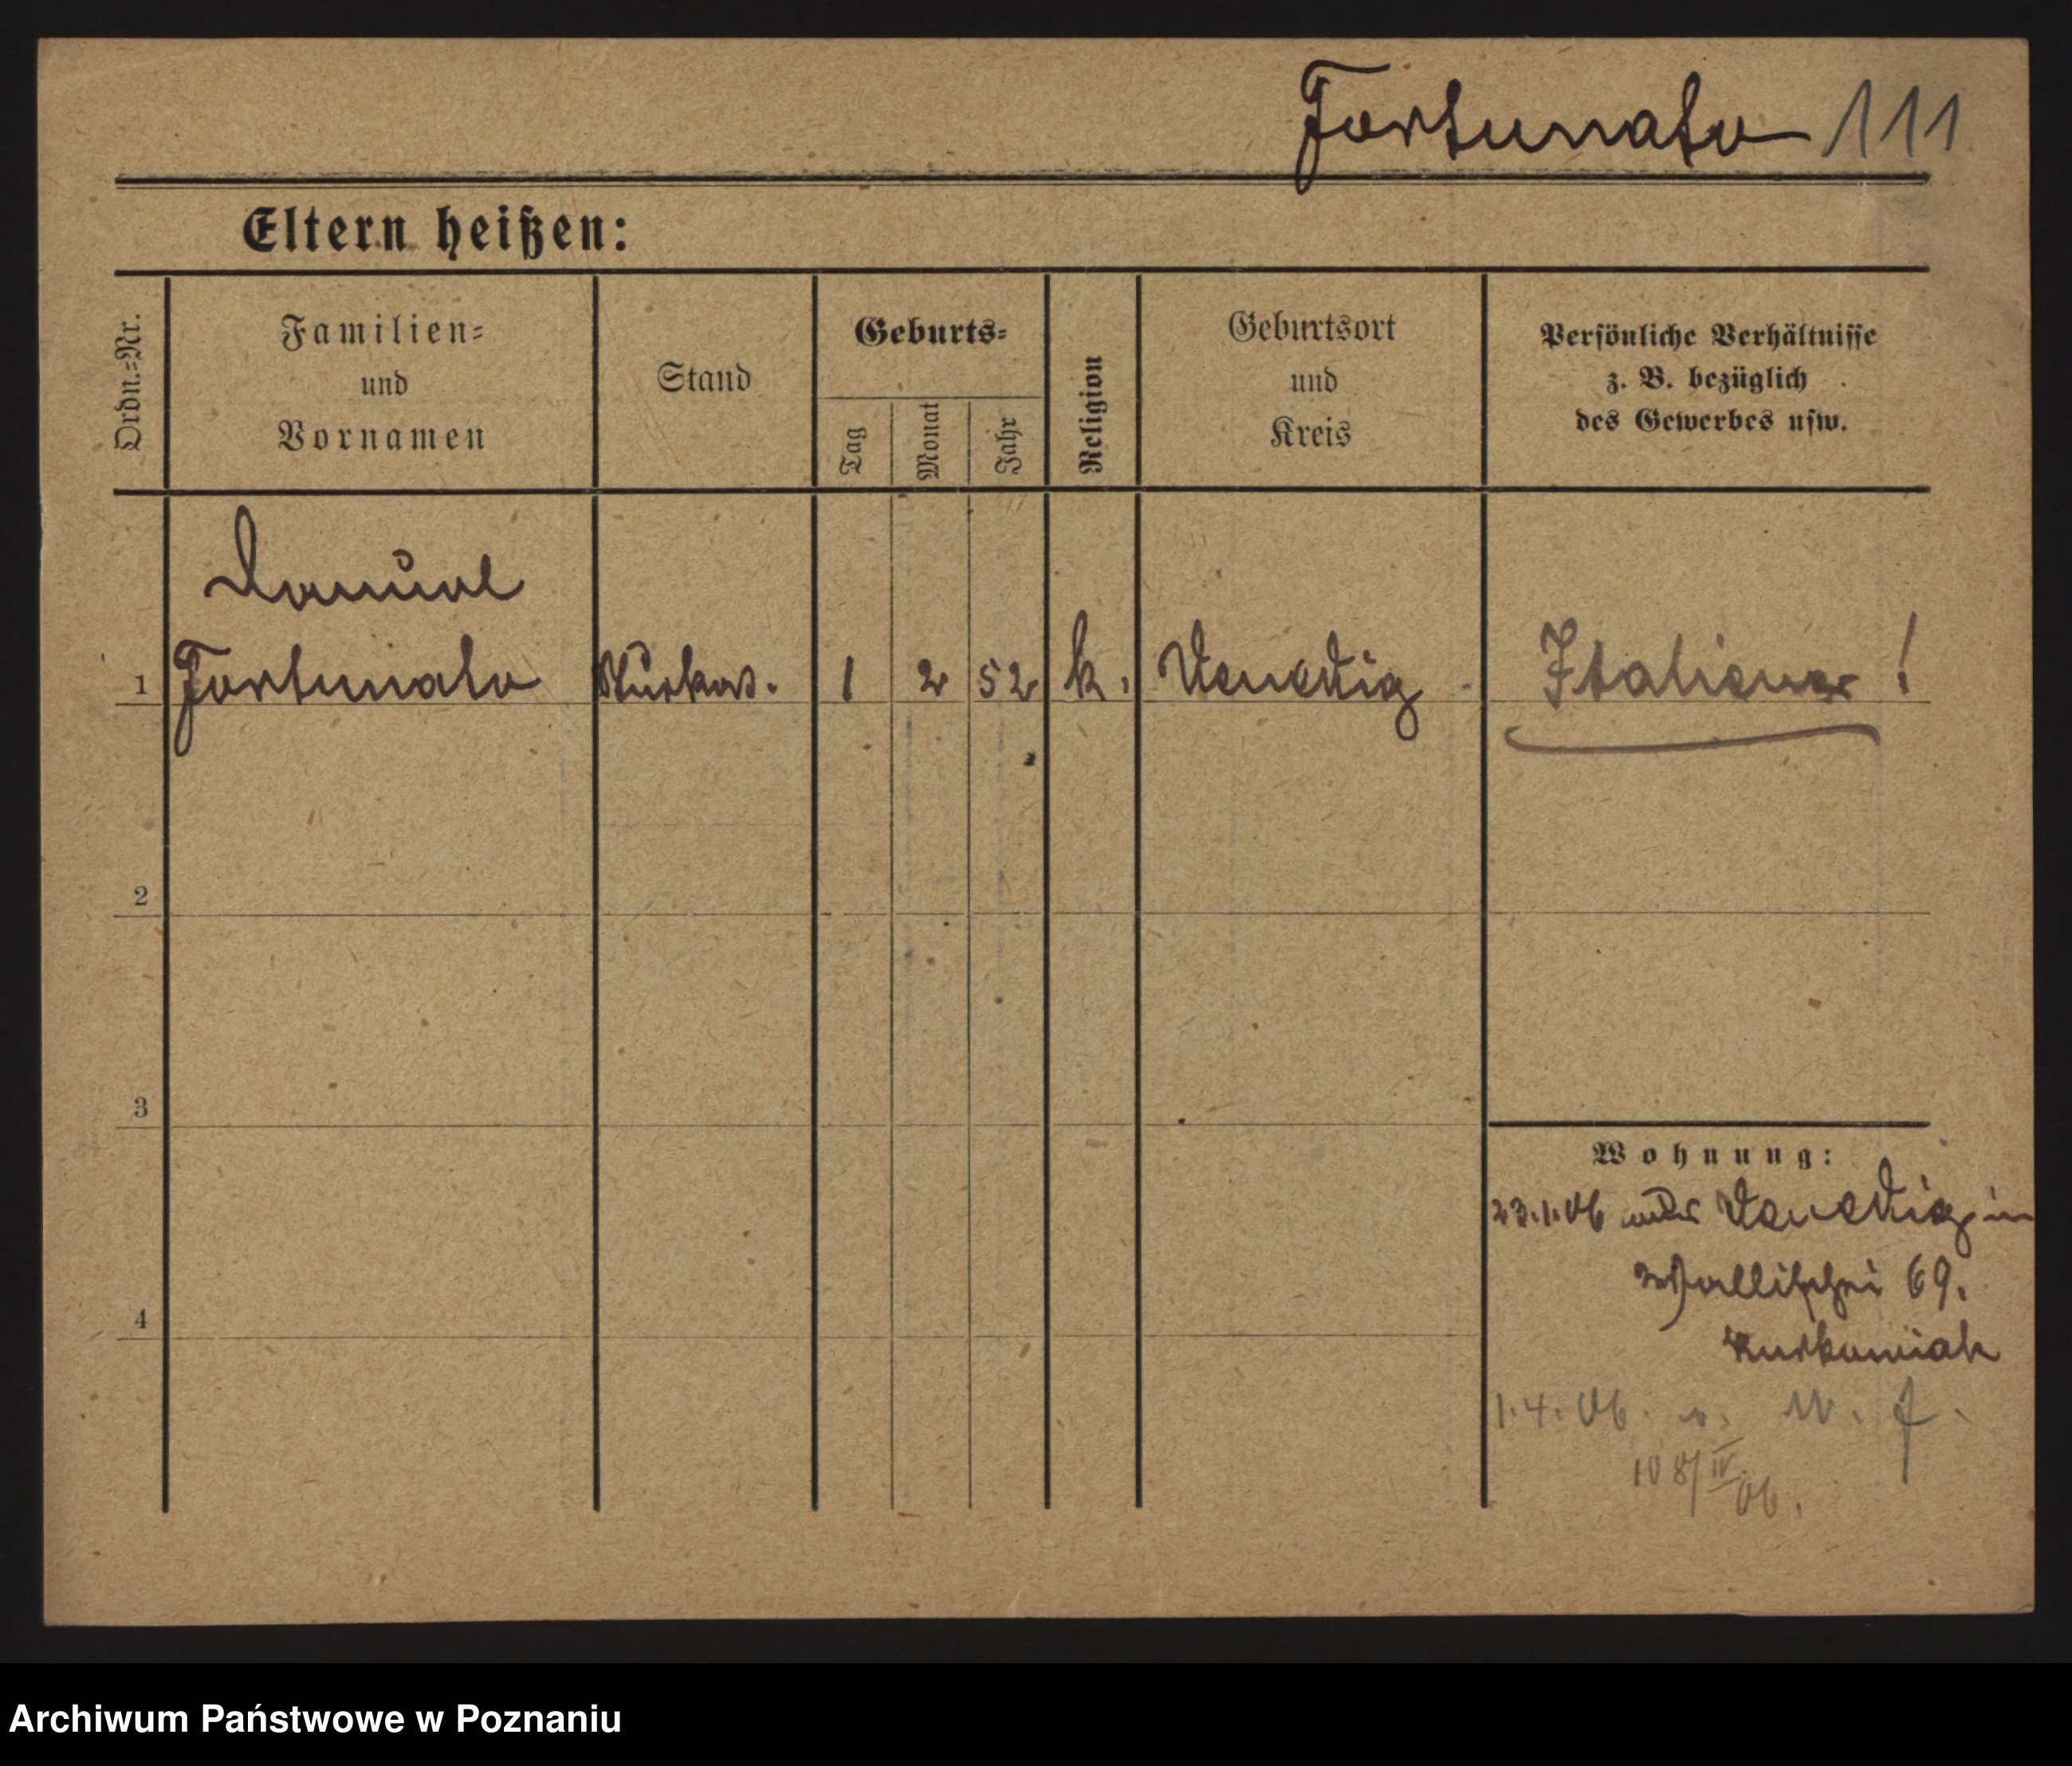 Fortunato 111
Eltern heißen:
Ordn.-Nr.
Familien-
und
Vornamen
Stand
Geburts-
Tag
Monat
Jahr
Religion
Geburtsort
und
Kreis
Persönliche Verhältnisse
z. B. bezüglich
des Gewerbes usw.
1 Fortunato 1 2 52 k. Venedig Italiener!
2
3
4
Wohnung:
23.1.06 Venedig in
Wallischei 69.
Kurkowiak
1.4.06.
Archiwum Państwowe w Poznaniu